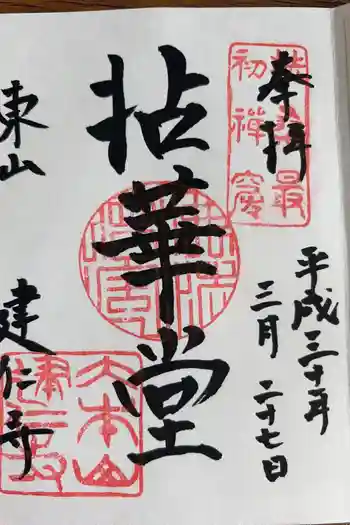 奉拝
平成三十年
三月二十七日
拈華堂
東山
建仁寺
扶桑最初禅窟
大本山建仁寺